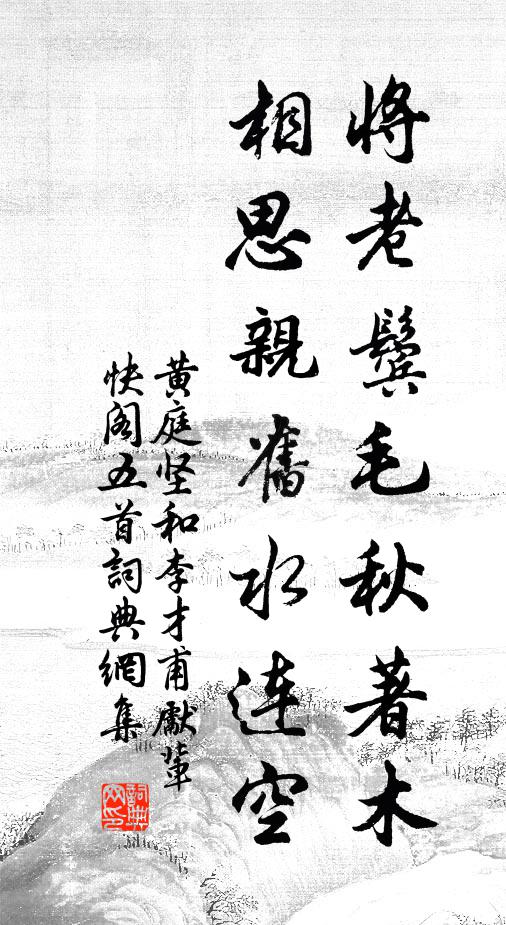 将老鬓毛秋著木
相思親舊水連空
黄庭坚和李才甫獻葷
快阁五首詞典網集